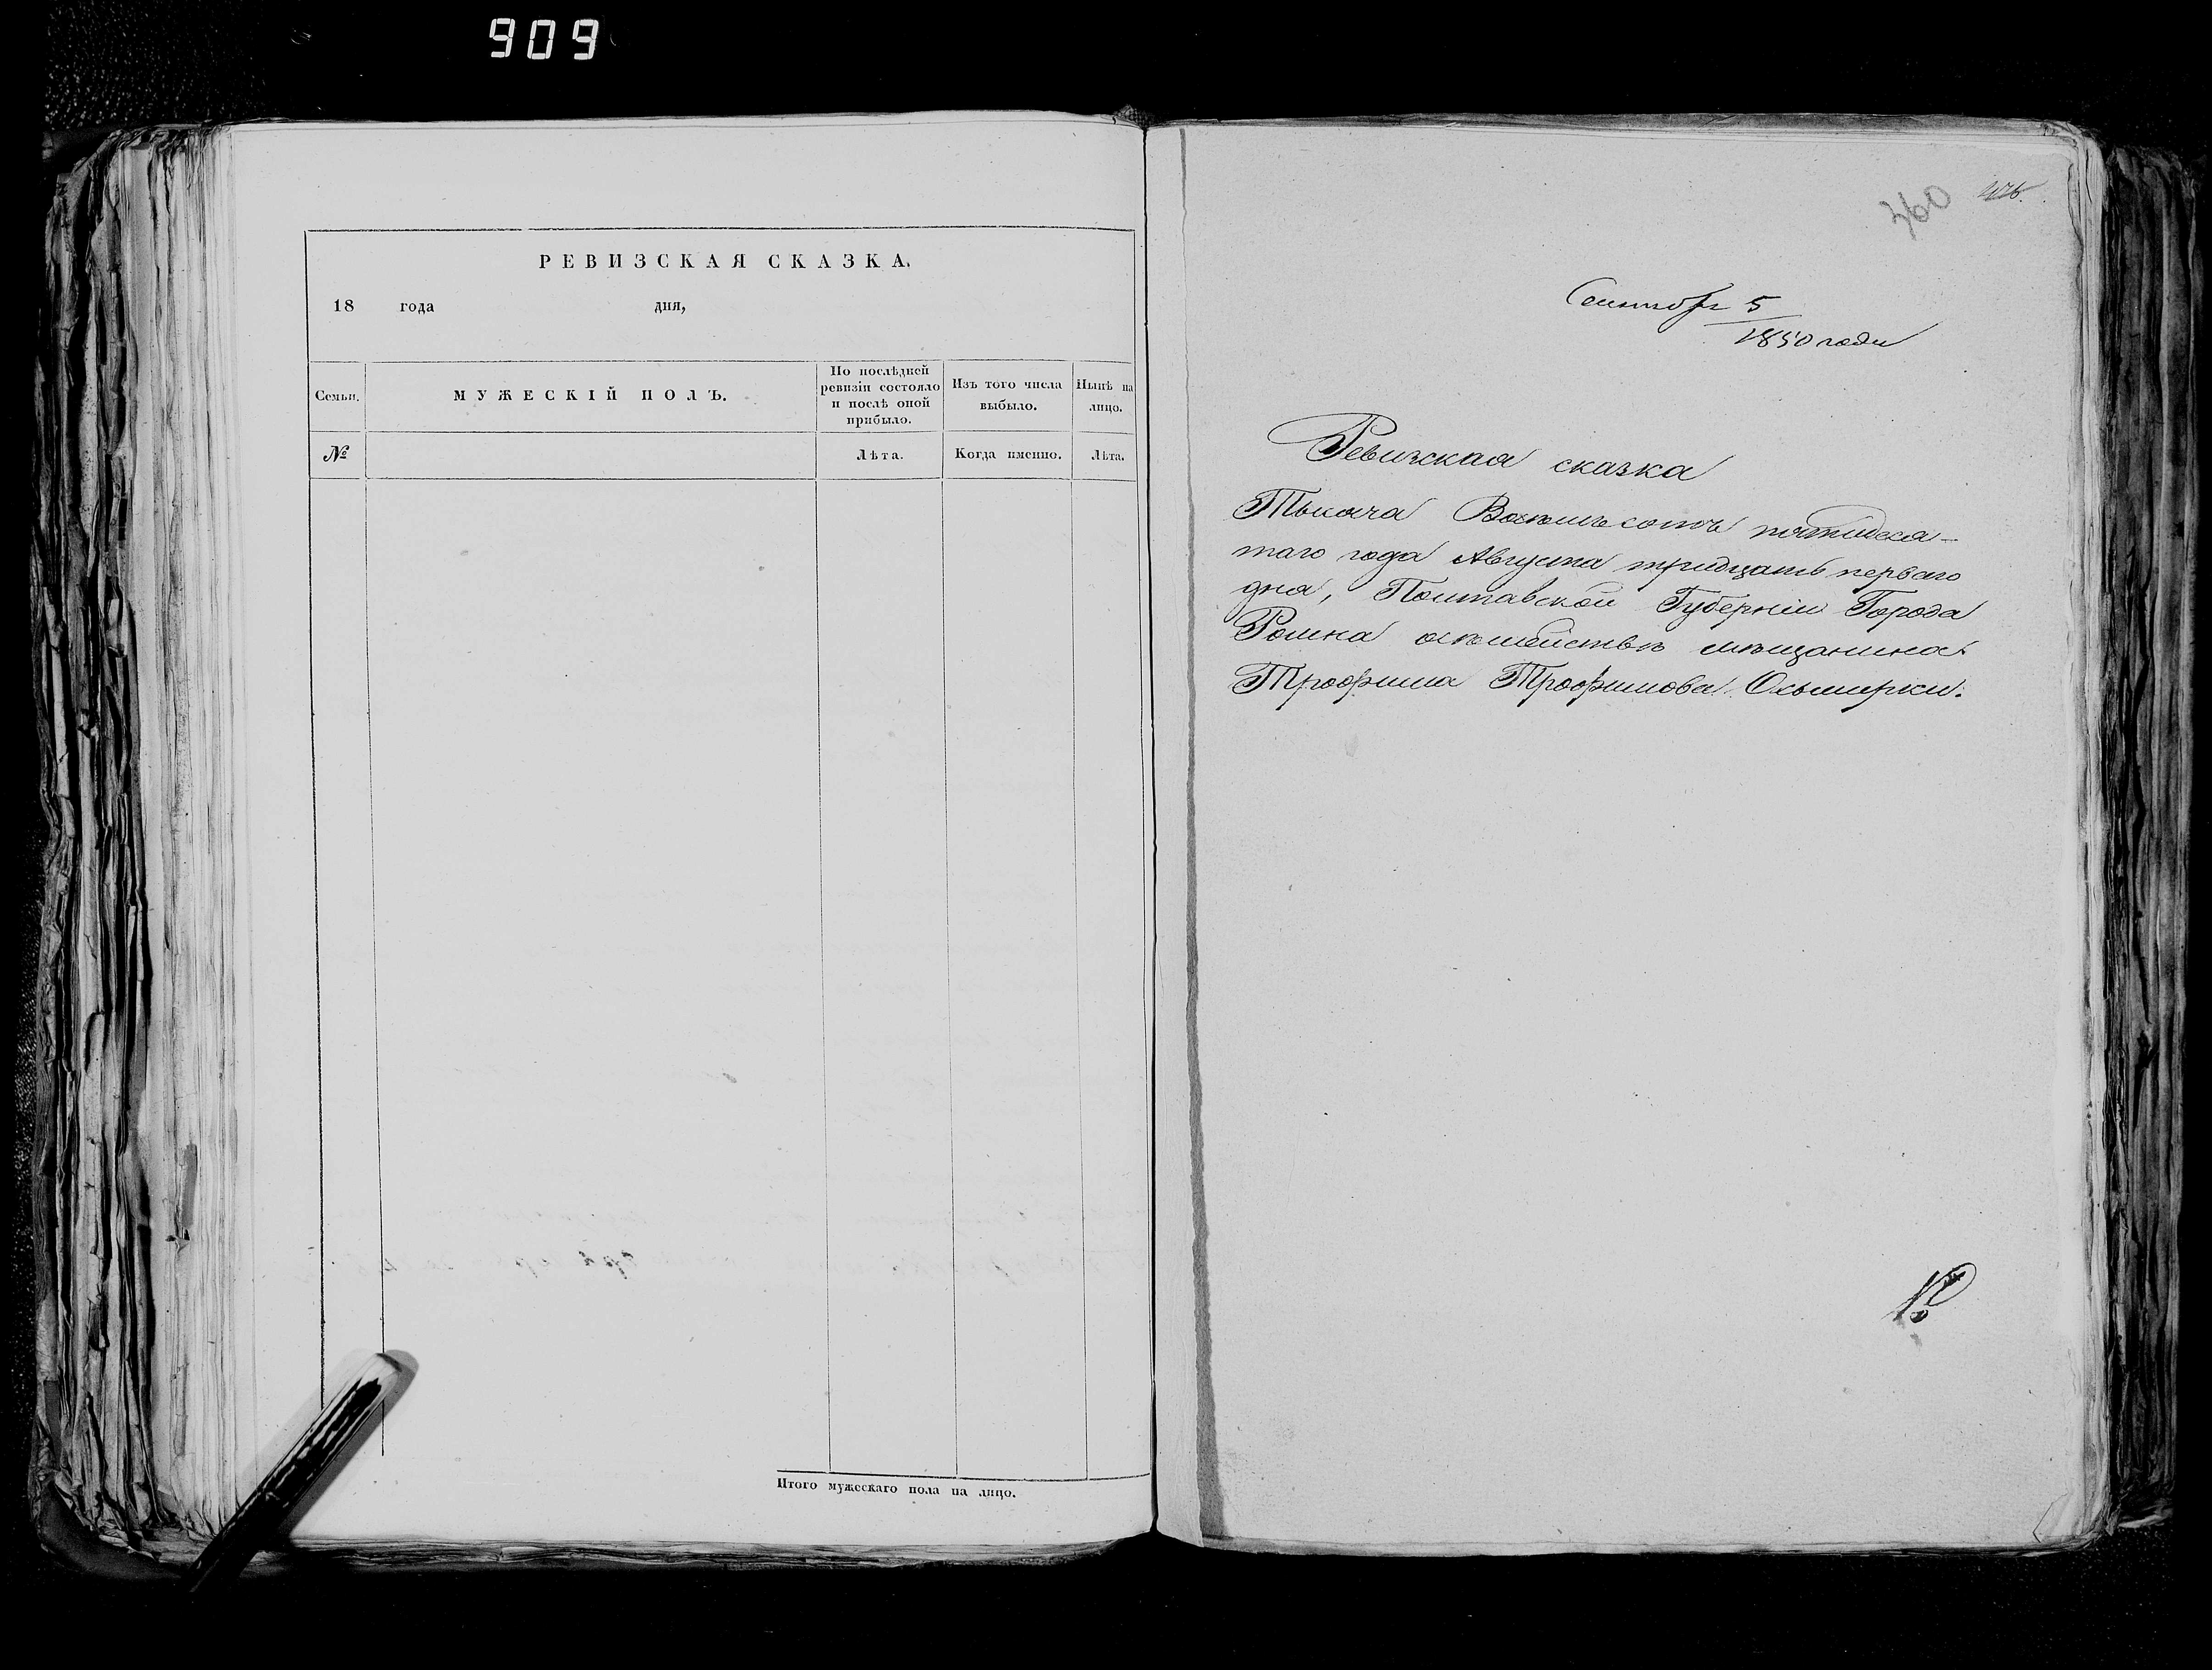 909
РЕВИЗСКАЯ СКАЗКА.
18 года дня,
Семьи.
МУЖЕСКІЙ ПОЛЪ.
По послѣдней ревизіи состояло и послѣ оной прибыло.
Изъ того числа выбыло.
Нынѣ на лицо.
№
Лѣта.
Когда именно.
Лѣта.
Итого мужескаго пола на лицо.
360
Сентября 5
1850 года
Ревизская сказка
Тысяча Восемьсотъ пятидеся-
таго года Августа тридцать перваго
дня, Полтавской Губерніи Города
Ромна осемействѣ мѣщанина
Трофима Трофимова